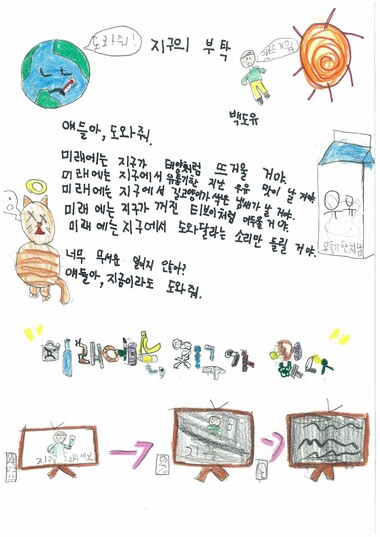 도와줘!
지구의 부탁
백도유
애들아, 도와줘.
미래에는 지구가 태양처럼 뜨거울 거야.
미래에는 지구에서 유통기한 지난 우유 맛이 날 거야.
미래에는 지구에서 길고양이가 썩은 냄새가 날 거야.
미래에는 지구가 꺼진 티브이처럼 어두울 거야.
미래에는 지구에서 도와달라는 소리만 들릴 거야.
유통기한지남
너무 무서운 일이지 않아?
애들아, 지금이라도 도와줘.
"미래에는
지구